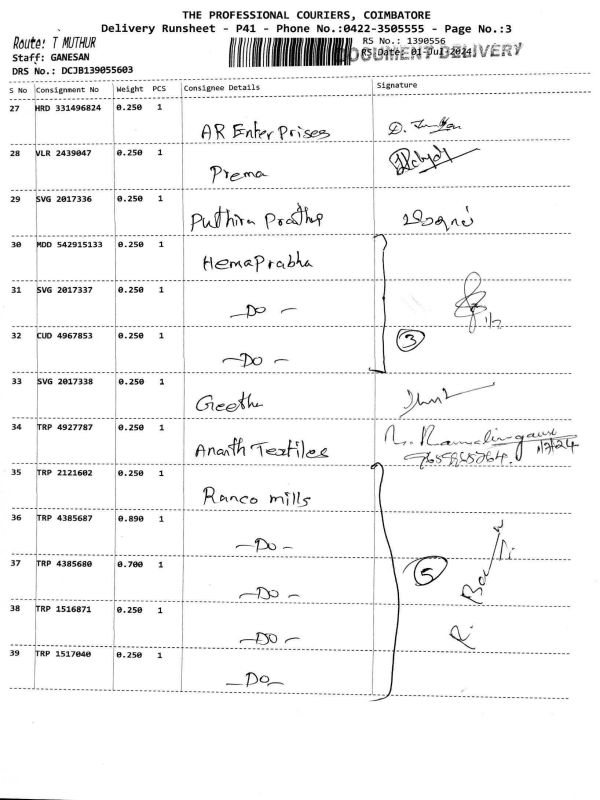 THE PROFESSIONAL COURIERS, COIMBATORE
Delivery Runsheet - P41 - Phone No.:0422-3505555 - Page No.:3
Route: T MUTHUR
RS No.: 1390556
DOCUMENT DELIVERY
Staff: GANESAN
RS Date: 01-Jul-2024
DRS No.: DCJB139055603
S No Consignment No Weight PCS Consignee Details Signature
27 HRD 331496824 0.250 1
AR Enterprises
28 VLR 2439047 0.250 1
Prema
29 SVG 2017336 0.250 1
Puthira Prathip
30 MDD 542915133 0.250 1
HemaPrabha
31 SVG 2017337 0.250 1
-Do-
1/7
32 CUD 4967853 0.250 1
3
-Do-
33 SVG 2017338 0.250 1
Geetha
34 TRP 4927787 0.250 1
Ananth Textiles
1/7/24
35 TRP 2121602 0.250 1
Ranco mills
36 TRP 4385687 0.890 1
-Do-
37 TRP 4385680 0.700 1
5
-Do-
38 TRP 1516871 0.250 1
-Do-
39 TRP 1517040 0.250 1
-Do-